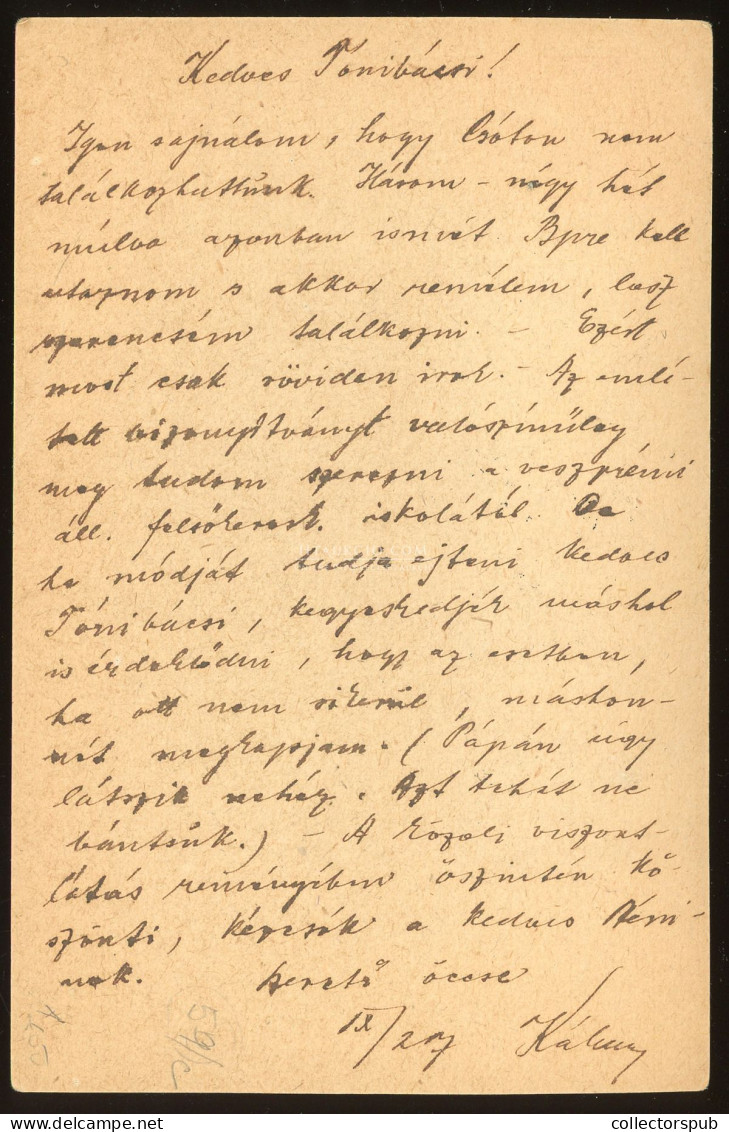 Kedves Tónibácsi!
Igen sajnálom, hogy Csóton nem
találkozhattunk. Három-négy hét
múlva azonban ismét Bpre kell
utaznom s akkor remélem, lesz
szerencsém találkozni. – Ezért
most csak röviden irok. – Az emlí-
tett bizonyítványt valószínűleg
meg tudom szerezni a veszprémi
áll. felsőkeresk. iskolától. De
ha módját tudja ejteni kedves
Tónibácsi, kegyeskedjék máshol
is érdeklődni, hogy az esetben,
ha ott nem sikerül, máshon-
nét megkapjam. (Pápán úgy
látszik nehéz. Azt tehát ne
bántsuk.) – A közeli viszont-
látás reményében őszintén kö-
szönti, kézcsók a kedves
nak. szerető öccse
IX/27 Kálmán
59/c
collectorspub